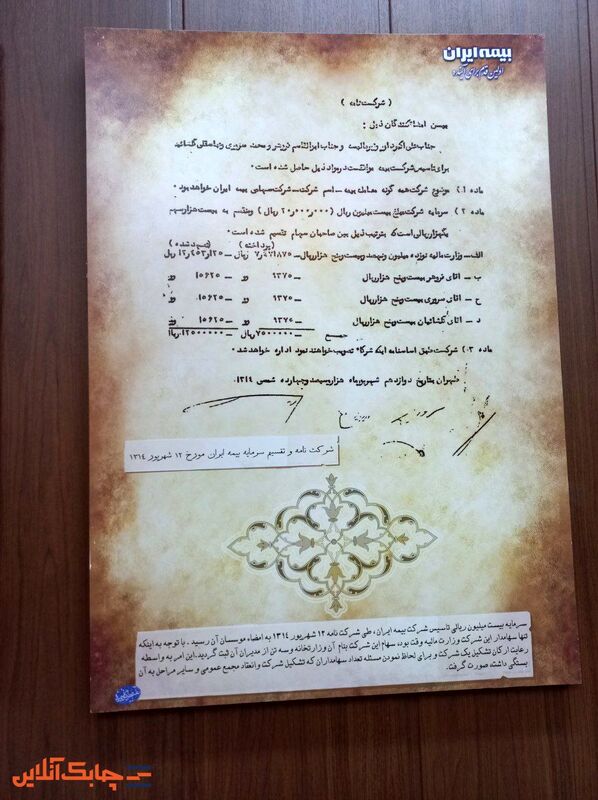 بیمه ایران
اولین قدم برای آینده
( شرکت نامه )
بین امضا کنندگان ذیل :
جناب علی اکبر داور وزیر مالیه و جناب ابوالقاسم فروهر و محمد سروری و عباسقلی گلشائیان
برای تاسیس شرکت بیمه موافقت در مواد ذیل حاصل شده است .
ماده ۱ ) موضوع شرکت همه گونه معاملات بیمه - اسم شرکت - شرکت سهامی بیمه ایران خواهد بود .
ماده ۲ ) سرمایه شرکت مبلغ بیست میلیون ریال ( ۲۰٬۰۰۰٬۰۰۰ ریال ) و منقسم به بیست هزار سهم
یکهزار ریالی است که بترتیب ذیل بین صاحبان سهام تقسیم شده است .
(پرداخته) (تعهد شده)
الف - وزارت مالیه نوزده میلیون و نهصد و بیست و پنج هزار ریال - ۷٬۴۷۱٬۸۷۵ ریال - ۱۲٬۴۵۳٬۱۲۵ ریال
ب - اقای فروهر بیست و پنج هزار ریال - ۹۳۷۵ " - ۱۵۶۲۵ "
ج - اقای سروری بیست و پنج هزار ریال - ۹۳۷۵ " - ۱۵۶۲۵ "
د - اقای گلشائیان بیست و پنج هزار ریال - ۹۳۷۵ " - ۱۵۶۲۵ "
جمع ۷۵۰۰۰۰۰ ریال - ۱۲۵۰۰۰۰۰ ریال
ماده ۳ ) شرکت طبق اساسنامه اینکه شرکاء تصویب خواهند نمود اداره خواهد شد .
طهران بتاریخ دوازدهم شهریور ماه هزار و سیصد و چهارده شمسی ۱۳۱۴.
شرکت نامه و تقسیم سرمایه بیمه ایران مورخ ۱۲ شهریور ۱۳۱۴
سرمایه بیست میلیون ریالی تاسیس شرکت بیمه ایران، طی شرکت نامه ۱۲ شهریور ۱۳۱۴ به امضاء موسسان آن رسید . با توجه به اینکه
تنها سهامدار این شرکت وزارت مالیه وقت بود، سهام این شرکت بنام آن وزارتخانه و سه تن از مدیران آن ثبت گردید. این امر به واسطه
رعایت ارکان تشکیل یک شرکت و برای لحاظ نمودن مسئله تعداد سهامداران که تشکیل شرکت و انعقاد مجمع عمومی و سایر مراحل به آن
بستگی داشته صورت گرفت.
چابک آنلاین